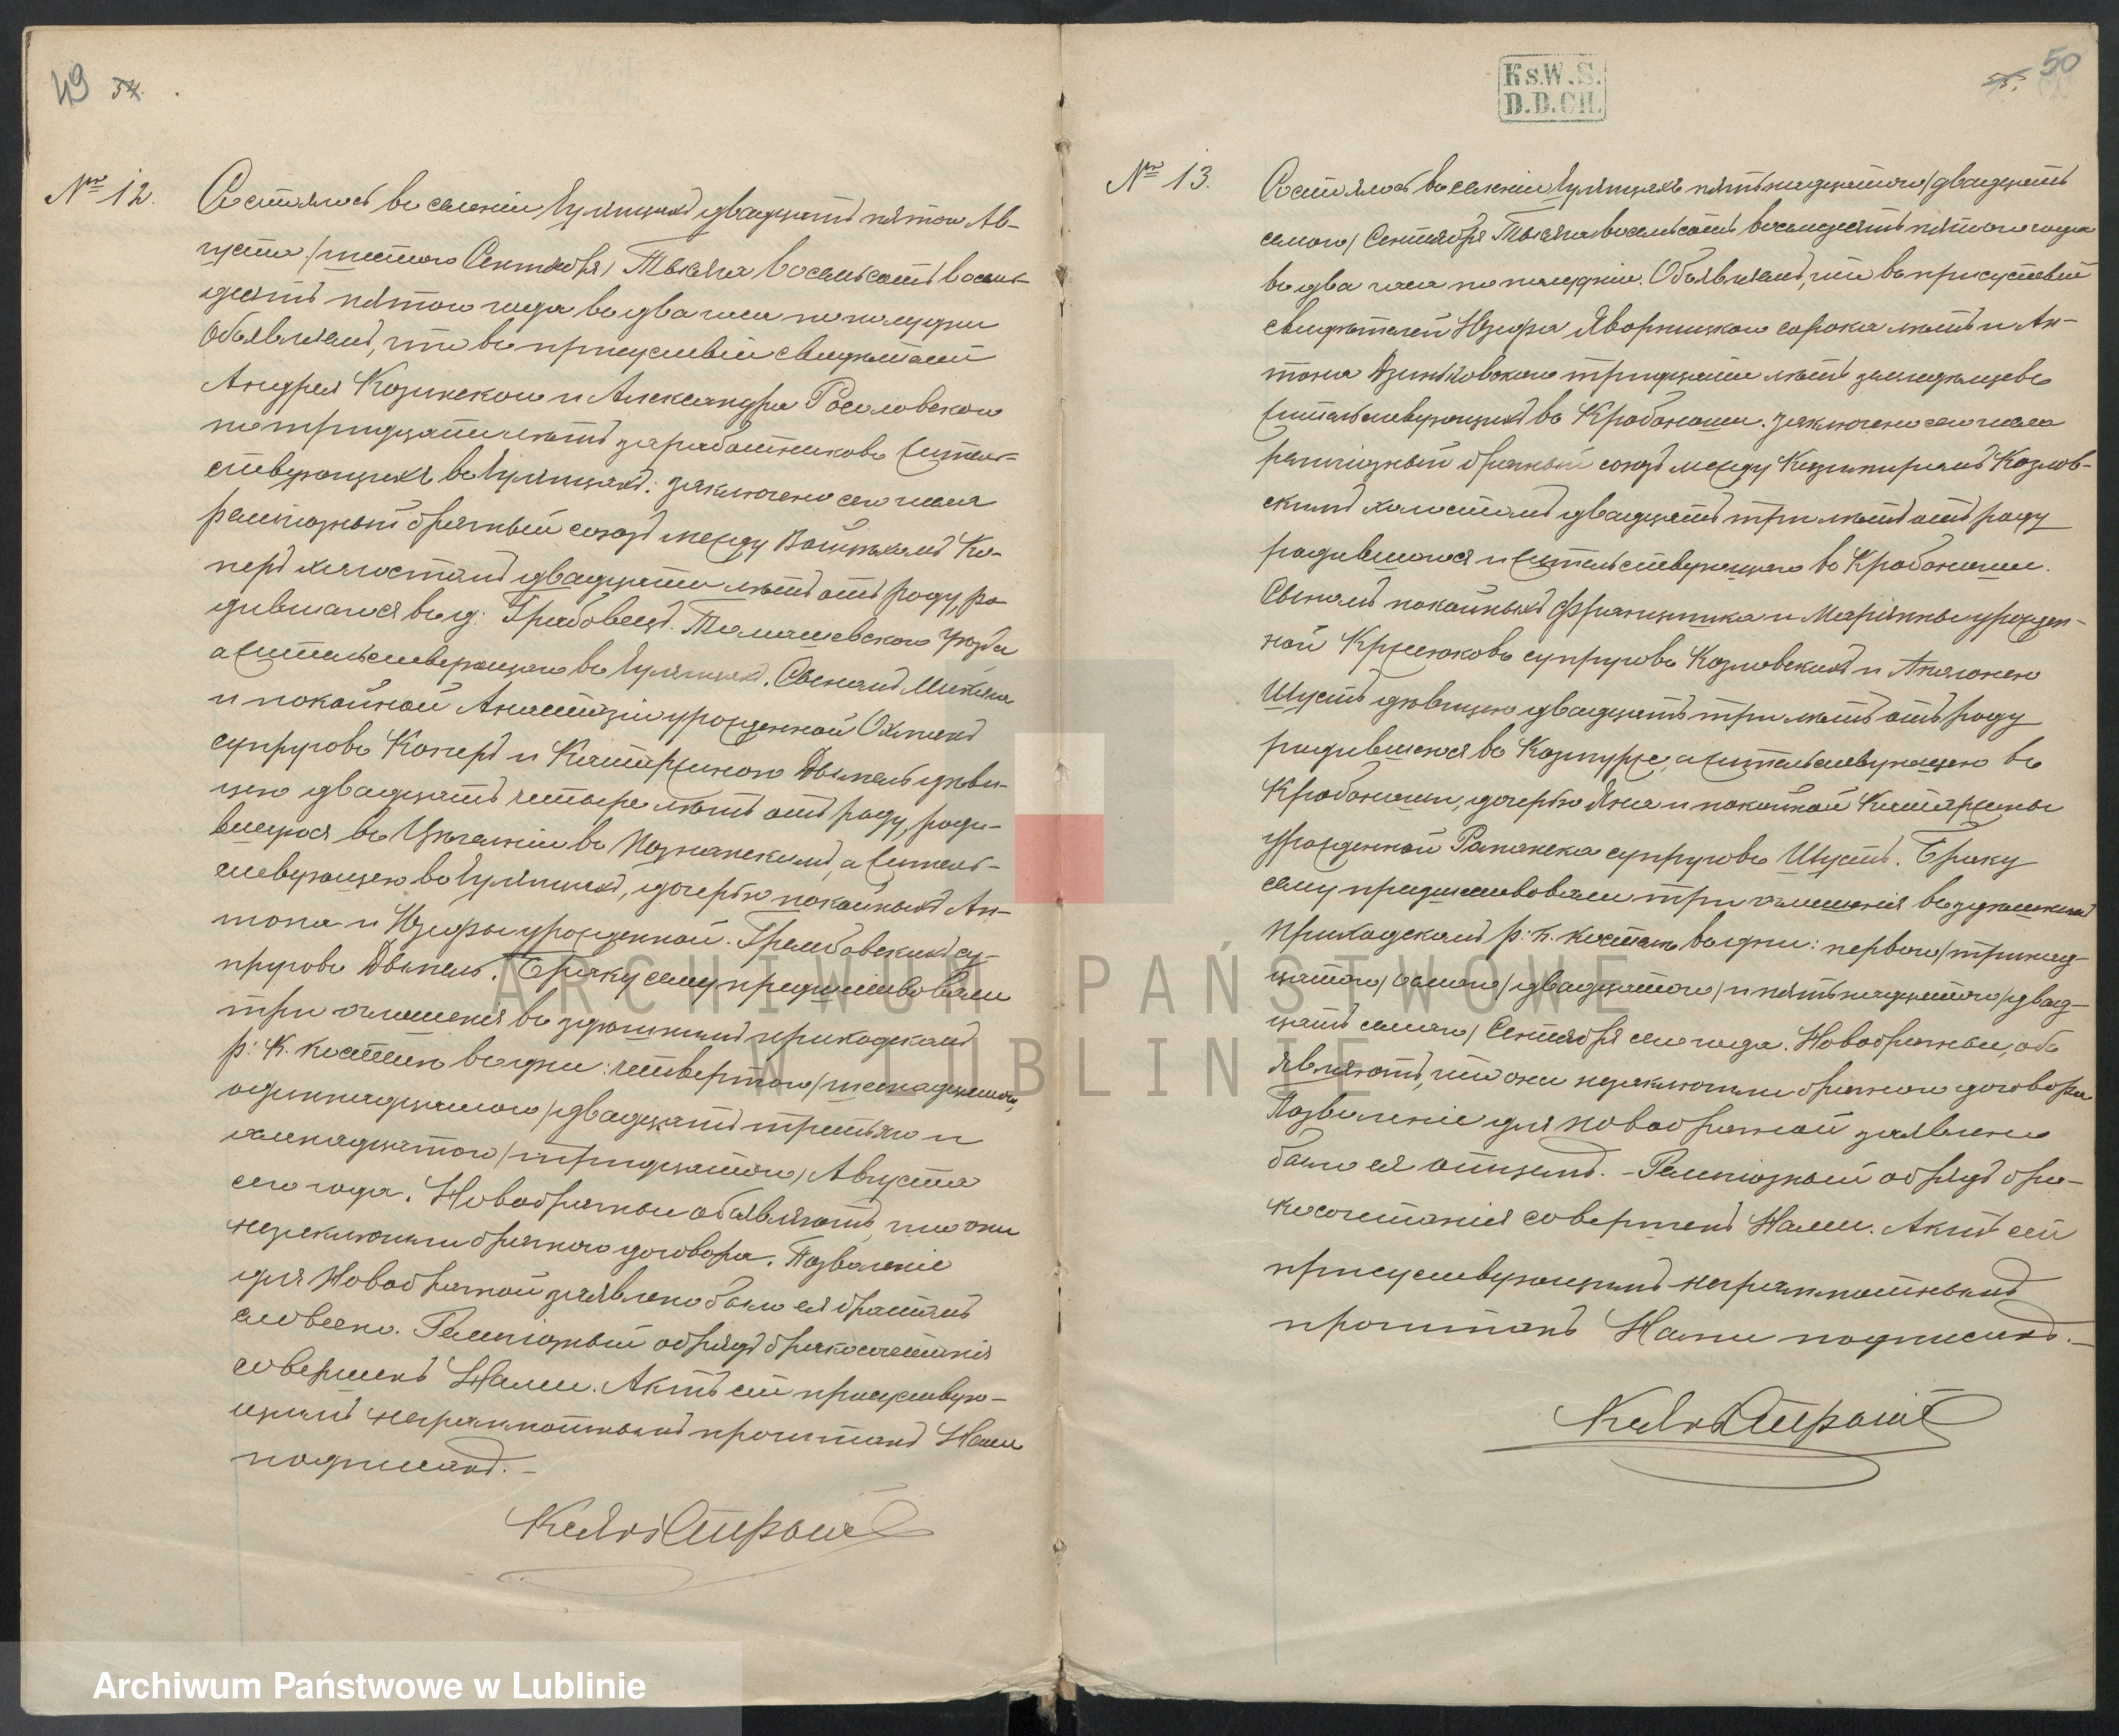 49 54.
№ 12.
Состоялось въ селеніи Чулчицахъ двадцать пятого Ав-
густа /шестого Сентября/ Тысяча восемьсотъ восемь-
десятъ пятого года въ два часа по полудни
Объявляемъ, что въ присутствіи свидѣтелей
Андрея Козинского и Александра Росоловского
по тридцати лѣтъ заработниковъ житель-
ствующихъ въ Чулчицахъ: заключено сего числа
религіозный брачный союзъ между Войцѣхомъ Ко-
перъ холостымъ двадцати лѣтъ отъ роду, ро-
дившагося въ д: Грабовецъ Томашевского Уѣзда
а жительствующаго въ Чулчицахъ. Сыномъ
и покойной Анастазіи урожденной
супруговъ Коперъ и Катаржиною Дымель дѣви-
цею двадцать четыре лѣтъ отъ роду, роди-
вшеюся въ въ Познанскимъ, а житель-
ствующею въ Чулчицахъ, дочерью покойныхъ Ан-
тона и Юзефы урожденной Грембовскихъ су-
пруговъ Дымель. Браку сему предшествовали
три оглашенія въ здѣшнимъ приходскомъ
р: к. костелѣ во дни: четвертого /шестнадцатого/,
одиннадцатого /двадцать третьяго и
осемнадцатого /тридцатого/ Августа
сего года. Новобрачные объявляютъ, что они
незаключили брачного договора. Позволеніе
для Новобрачной заявлено было ея братомъ
словесно. Религіозный обрядъ бракосочетанія
совершенъ Нами. Актъ сей присутствую-
щимъ неграмотнымъ прочитанъ Нами
подписанъ.—
Archiwum Państwowe w Lublinie
KsW.S.
D.D.CH.
50
55.
№ 13.
Состоялось въ селеніи Чулчицахъ пятьнадцатого /двадцать
семого/ Сентября Тысяча восемьсотъ восемьдесятъ пятого года
въ два часа по полудни. Объявляемъ, что въ присутствіи
свидѣтелей Юзефа Яворницкого сорока лѣтъ и Ан-
тона Дзиньковского тридцати лѣтъ земледѣльцевъ
жительствующихъ въ Кробоноши. заключено сего числа
религіозный брачный союзъ между Казимиромъ Козлов-
скимъ холостымъ двадцать три лѣтъ отъ роду
родившагося и жительствующаго въ Кробоноши.
Сыномъ покойныхъ Францишка и Маріянны урожден-
ной супруговъ Козловскихъ и Аполонею
Шустъ дѣвицею двадцать три лѣтъ отъ роду
родившеюся въ а жительствующею въ
Кробоноши, дочерью Яна и покойной Катаржины
урожденной супруговъ Шустъ. Браку
сему предшествовали три оглашенія въ здѣшнимъ
Приходскомъ р: к. костелѣ во дни: первого /тринад-
цатого/ осмого /двадцатого/ и пятьнадцатого /двад-
цать семого/ Сентября сего года. Новобрачные, объ
являютъ, что они незаключили брачного договора
Позволеніе для новобрачной заявлено
было ея отцемъ.—Религіозный обрядъ бра-
косочетанія совершенъ Нами. Актъ сей
присутствующимъ неграмотнымъ
прочитанъ Нами подписанъ.—
ARCHIWUM PAŃSTWOWE
W LUBLINIE